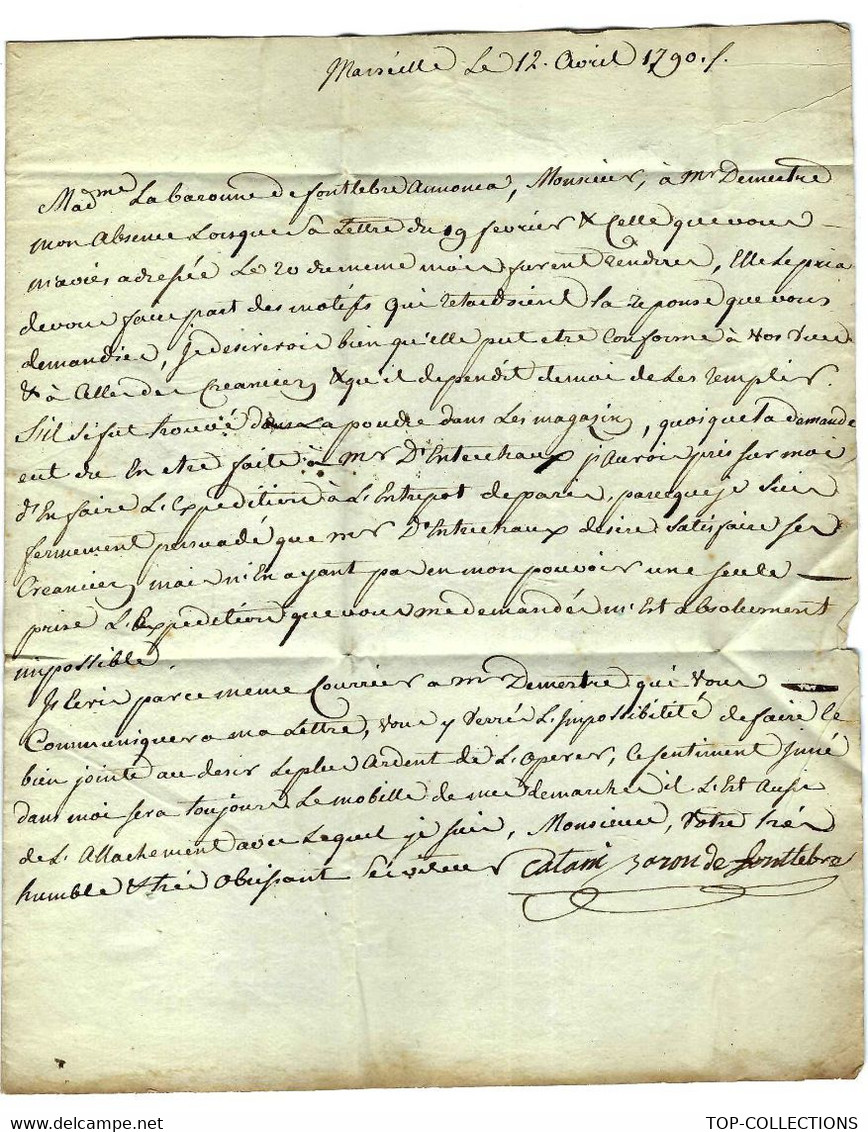 Marseille Le 12. Avril 1790./.
Mad.me La baronne de fontlebre Annonca, Monsieur, à mr Demestre
mon Absence Lorsque sa Lettre du 19 fevrier & Celle que vous
m'aviés adressée Le 20 du meme mois furent rendues, Elle Le pria
de vous faire part des motifs qui retardoient la reponse que vous
demandiés, je desirerois bien qu'elle put etre Conforme à vos vues
& à Celles des Creanciers & qu'il dependit de moi de Les remplir.
S'il s'etut trouvé dans La poudre dans Les magazins, quoique la demande
eut du En etre faite à mr D'Entrechaux j'Aurois pris sur moi
d'En faire L'Expedition à L'Entrepot de paris, parceque je suis
fermement persuadé que mr D'Entrechaux desire satisfaire ses
Creanciers mais n'En ayant pas en mon pouvoir une seule
prise L'Expedition que vous me demandés m'Est absolument
impossible.
J'Ecris par ce meme Courrier a mr Demestre qui vous
Communiquera ma Lettre, vous y verrés L'Impossibilité de faire le
bien jointe au desir Le plus Ardent de L'operer, Ce sentiment inné
dans moi sera toujours Le mobille de mes demarches il L'Est Aussi
de L'Attachement avec Lequel je suis, Monsieur, votre trés
humble & trés obeissant serviteur Catani baron de fontlebre
TOP-COLLECTIONS